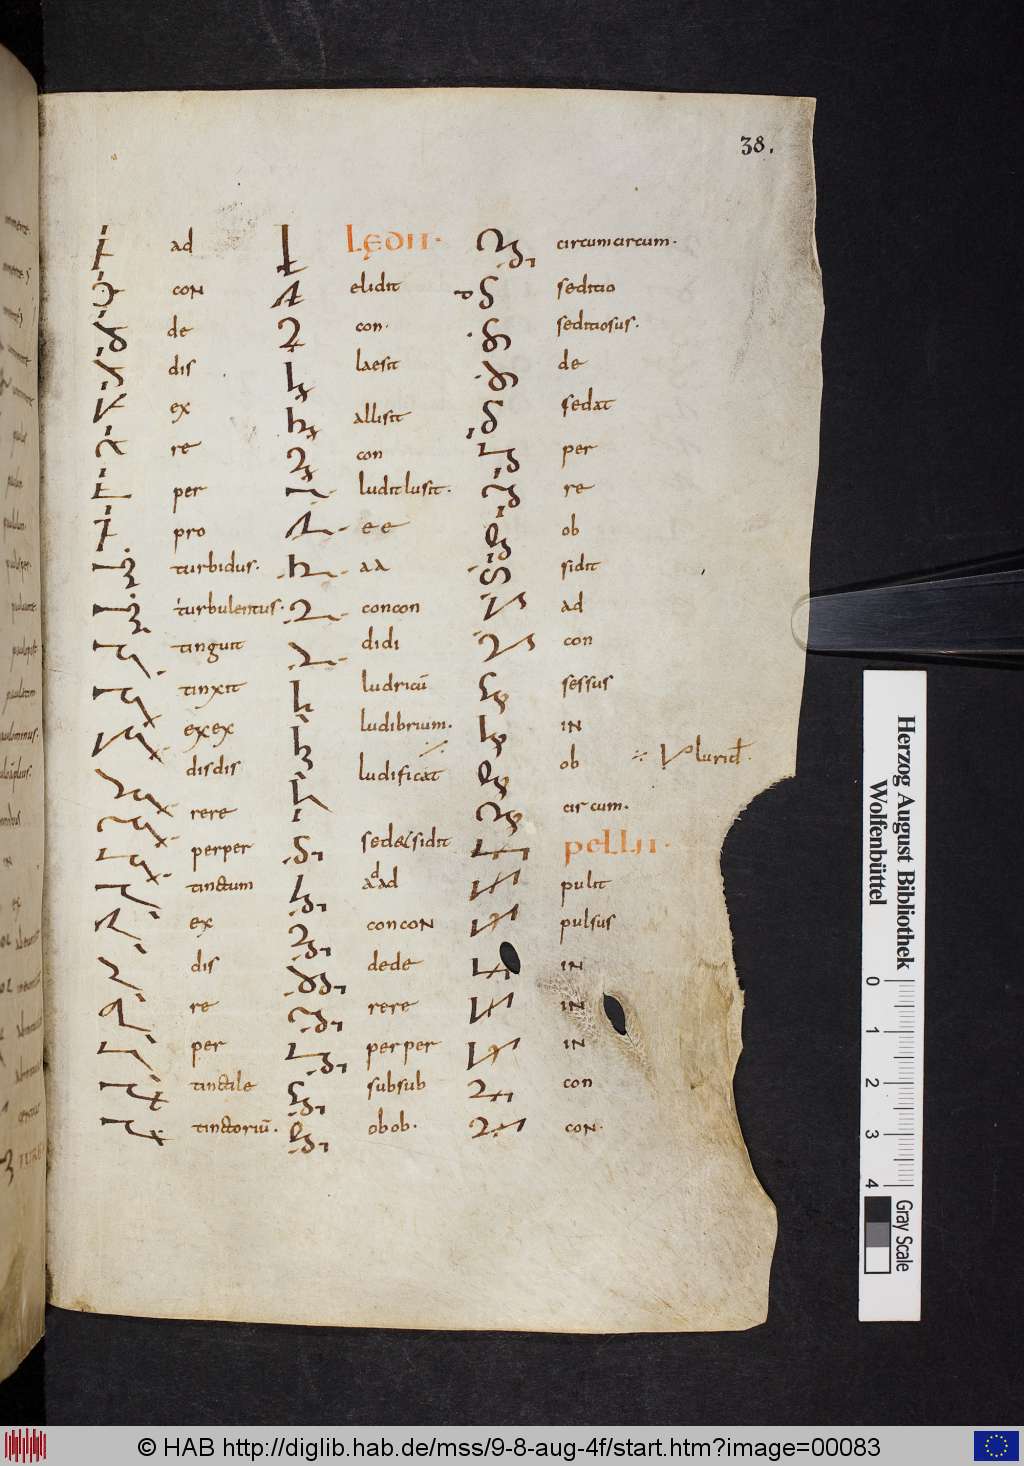 38.
ad
con
de
dis
ex
re
per
pro
turbidus.
turbulentus.
tinguit
tinxit
exex
disdis
rere
perper
tinctum
ex
dis
re
per
tinctile
tinctoriū.
Lędit.
elidit
con.
laesit
allisit
con
luditlusit.
e e
a a
concon
didi
ludricū
ludibrium.
ludificat
sed& sidit
adad
concon
dede
rere
perper
subsub
obob.
circumcircum.
seditio
seditiosus.
de
sedat
per
re
ob
sidit
ad
con
sessus
in
ob
circum.
pellit.
pulit
pulsus
in
in
in
con
con.
Herzog August Bibliothek
Wolfenbüttel
0 1 2 3 4
Gray Scale
© HAB http://diglib.hab.de/mss/9-8-aug-4f/start.htm?image=00083